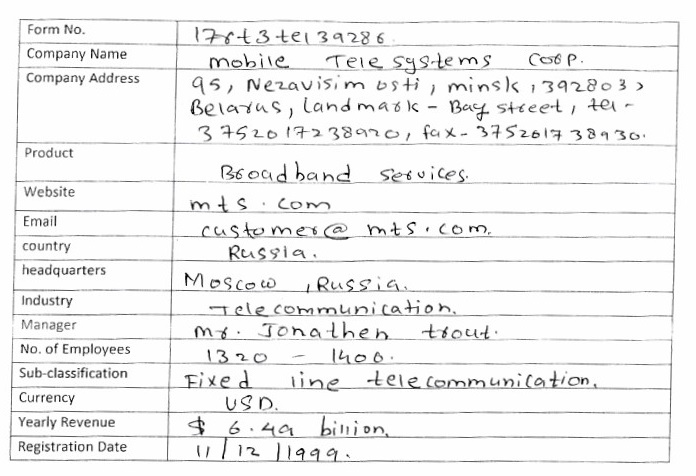 Form No. 17rt3tel39286
Company Name mobile Tele systems Corp.
Company Address 95, Nezavisim osti, minsk, 392803,
Belarus, Landmark - Bay street, tel -
3752017238920, fax - 375201738930.
Product Broadband services.
Website mts.com
Email customer@mts.com.
country Russia.
headquarters Moscow, Russia.
Industry Telecommunication.
Manager mr. Jonathen trout.
No. of Employees 1320 - 1400.
Sub-classification Fixed line telecommunication.
Currency USD.
Yearly Revenue $ 6.49 billion.
Registration Date 11/12/1999.